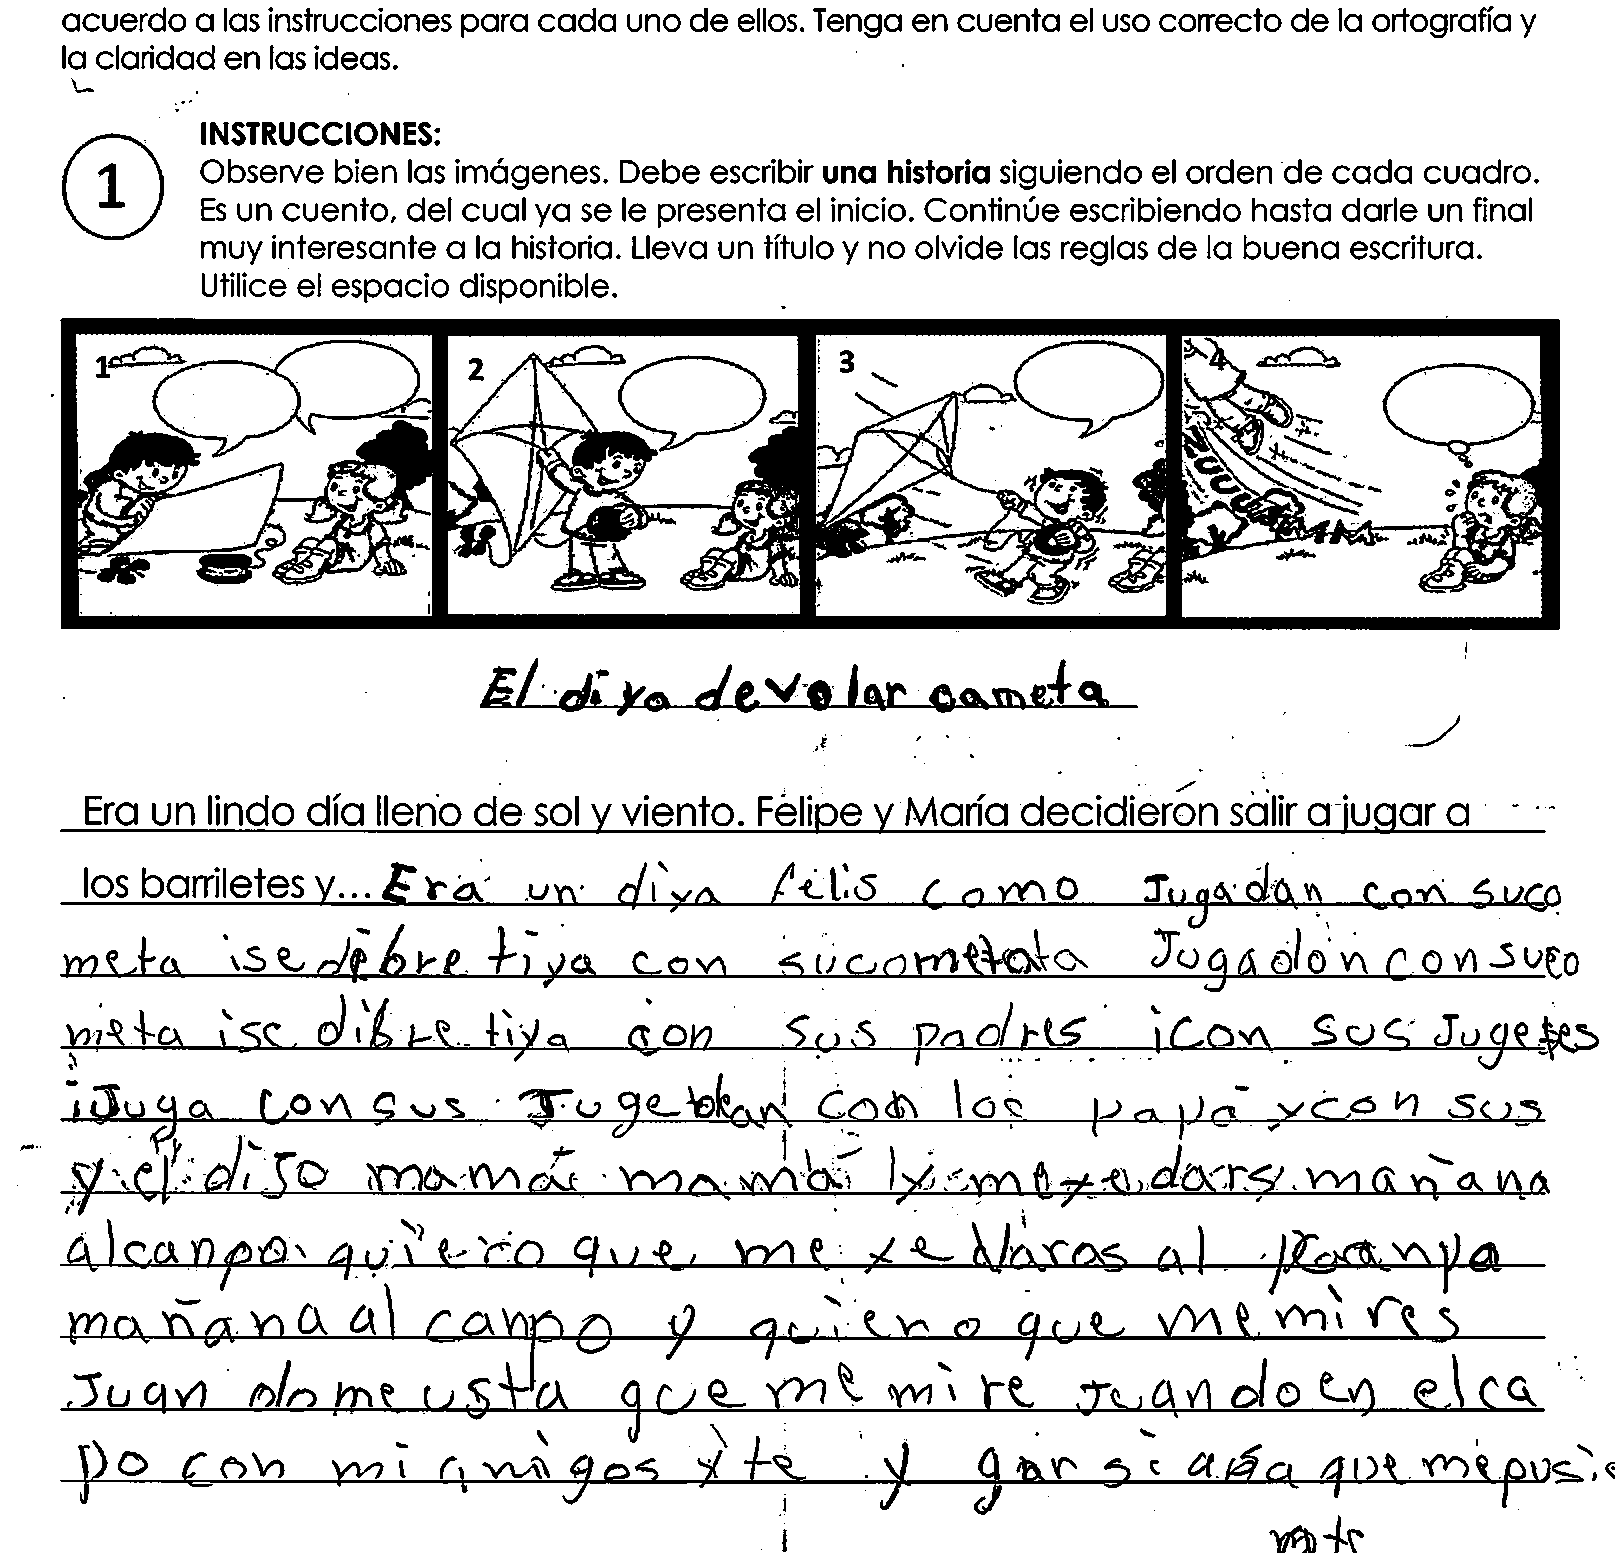 acuerdo a las instrucciones para cada uno de ellos. Tenga en cuenta el uso correcto de la ortografía y
la claridad en las ideas.
INSTRUCCIONES:
1
Observe bien las imágenes. Debe escribir una historia siguiendo el orden de cada cuadro.
Es un cuento, del cual ya se le presenta el inicio. Continúe escribiendo hasta darle un final
muy interesante a la historia. Lleva un título y no olvide las reglas de la buena escritura.
Utilice el espacio disponible.
1 2 3 4
El diya de volar cometa
Era un lindo día lleno de sol y viento. Felipe y María decidieron salir a jugar a
los barriletes y... Era un diya felis como Jugadan con suco
meta ise debretiya con sucometata Jugadon con suco
meta ise dibretiya con sus padres icon sus Jugetes
iJuga con sus con los papá ycon sus
y el diJo mamá mamá mañana
alcanpo quiero que me xe al
mañana al canpo y quiero que me mires
Juan do me usta que me mire Juando en elca
po con mi amigos y te y que mepusi